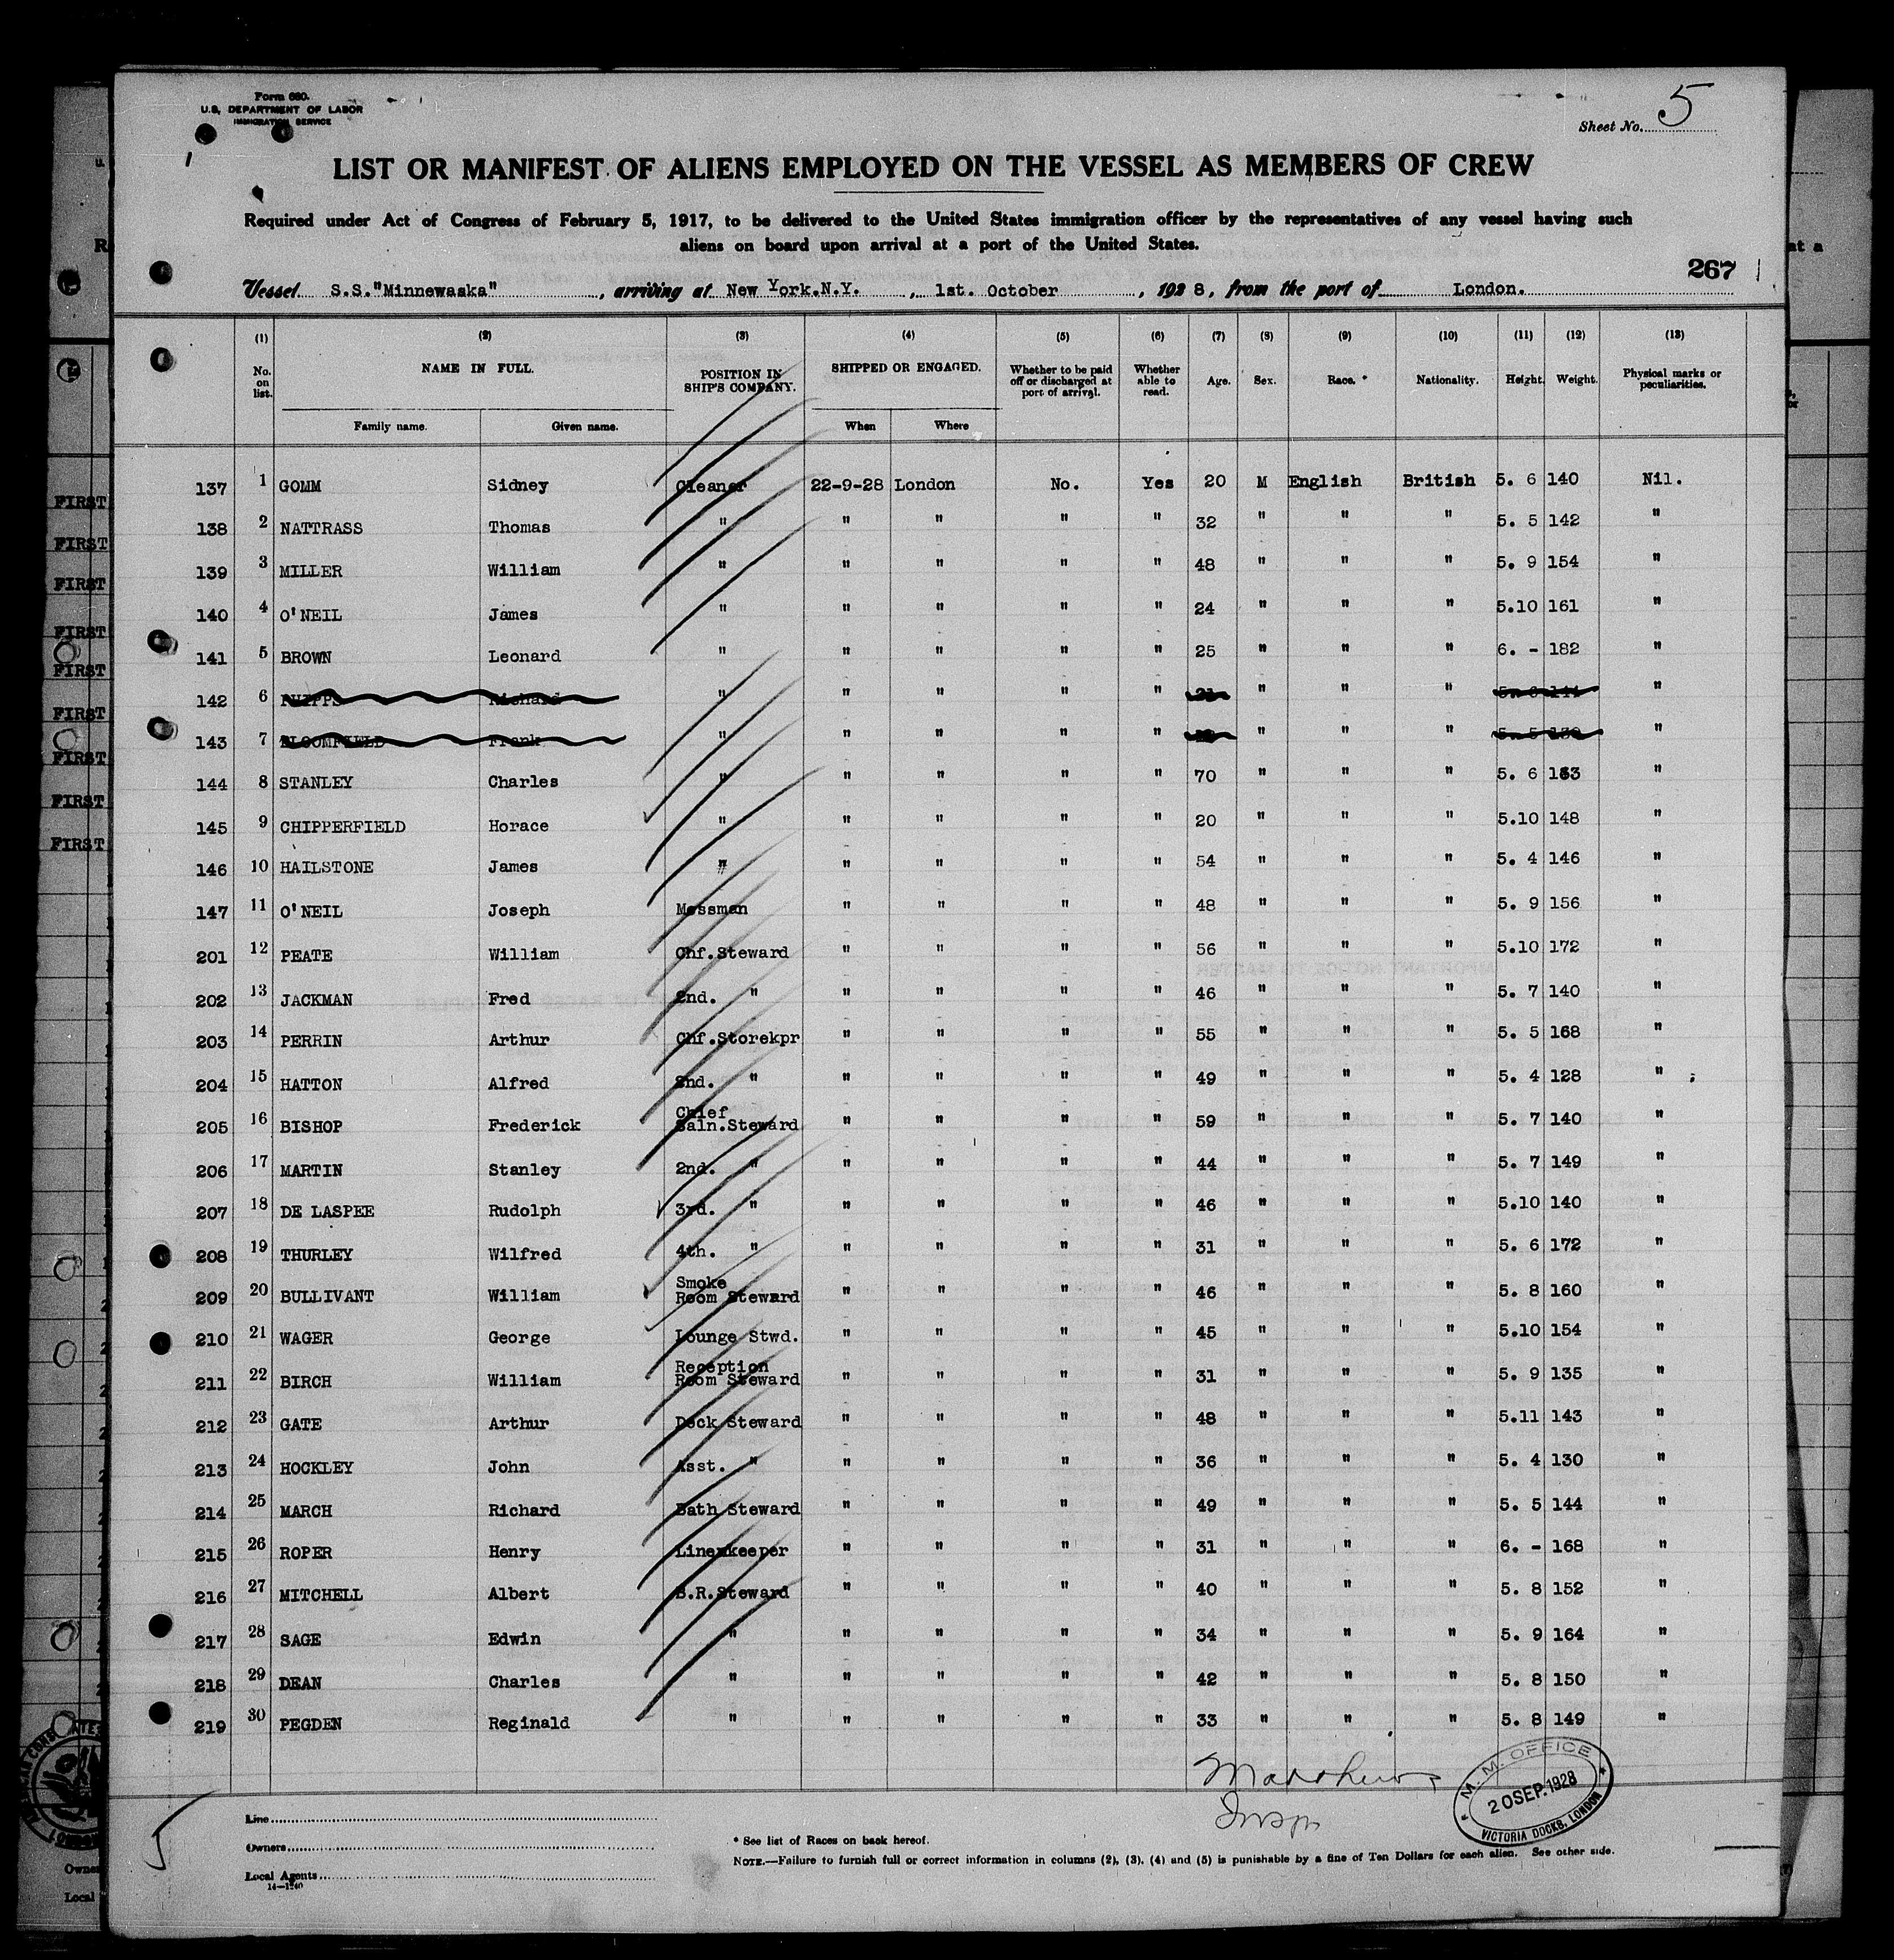 Form 680.
U.S. DEPARTMENT OF LABOR
IMMIGRATION SERVICE
Sheet No. 5
LIST OR MANIFEST OF ALIENS EMPLOYED ON THE VESSEL AS MEMBERS OF CREW
Required under Act of Congress of February 5, 1917, to be delivered to the United States immigration officer by the representatives of any vessel having such
aliens on board upon arrival at a port of the United States.
267
Vessel S.S."Minnewaska", arriving at New York.N.Y., 1st. October, 1928, from the port of London.
(1) (2) (3) (4) (5) (6) (7) (8) (9) (10) (11) (12) (13)
No. on list. NAME IN FULL. POSITION IN SHIP'S COMPANY. SHIPPED OR ENGAGED. Whether to be paid off or discharged at port of arrival. Whether able to read. Age. Sex. Race.* Nationality. Height. Weight. Physical marks or peculiarities.
Family name. Given name. When Where
137 1 GOMM Sidney Cleaner 22-9-28 London No. Yes 20 M English British 5. 6 140 Nil.
138 2 NATTRASS Thomas " " " " " 32 " " " 5. 5 142 "
139 3 MILLER William " " " " " 48 " " " 5. 9 154 "
140 4 O'NEIL James " " " " " 24 " " " 5.10 161 "
141 5 BROWN Leonard " " " " " 25 " " " 6. - 182 "
142 6 Richard " " " " " " " " "
143 7 BLOOMFIELD Frank " " " " " " " " "
144 8 STANLEY Charles " " " " " 70 " " " 5. 6 "
145 9 CHIPPERFIELD Horace " " " " " 20 " " " 5.10 148 "
146 10 HAILSTONE James " " " " " 54 " " " 5. 4 146 "
147 11 O'NEIL Joseph Messman " " " " 48 " " " 5. 9 156 "
201 12 PEATE William Chf.Steward " " " " 56 " " " 5.10 172 "
202 13 JACKMAN Fred 2nd. " " " " " 46 " " " 5. 7 140 "
203 14 PERRIN Arthur Chf.Storekpr " " " " 55 " " " 5. 5 168 "
204 15 HATTON Alfred 2nd. " " " " " 49 " " " 5. 4 128 "
205 16 BISHOP Frederick Chief Saln.Steward " " " " 59 " " " 5. 7 140 "
206 17 MARTIN Stanley 2nd. " " " " " 44 " " " 5. 7 149 "
207 18 DE LASPEE Rudolph 3rd. " " " " " 46 " " " 5.10 140 "
208 19 THURLEY Wilfred 4th. " " " " " 31 " " " 5. 6 172 "
209 20 BULLIVANT William Smoke Room Steward " " " " 46 " " " 5. 8 160 "
210 21 WAGER George Lounge Stwd. " " " " 45 " " " 5.10 154 "
211 22 BIRCH William Reception Room Steward " " " " 31 " " " 5. 9 135 "
212 23 GATE Arthur Deck Steward " " " " 48 " " " 5.11 143 "
213 24 HOCKLEY John Asst. " " " " " 36 " " " 5. 4 130 "
214 25 MARCH Richard Bath Steward " " " " 49 " " " 5. 5 144 "
215 26 ROPER Henry Linenkeeper " " " " 31 " " " 6. - 168 "
216 27 MITCHELL Albert B.R.Steward " " " " 40 " " " 5. 8 152 "
217 28 SAGE Edwin " " " " " 34 " " " 5. 9 164 "
218 29 DEAN Charles " " " " " 42 " " " 5. 8 150 "
219 30 PEGDEN Reginald " " " " " 33 " " " 5. 8 149 "
Matthews
Insp
M. M. OFFICE
20 SEP. 1928
VICTORIA DOCKS, LONDON
5
Line
Owners
Local Agents
14—1240
* See list of Races on back hereof.
NOTE.—Failure to furnish full or correct information in columns (2), (3), (4) and (5) is punishable by a fine of Ten Dollars for each alien. See other side.